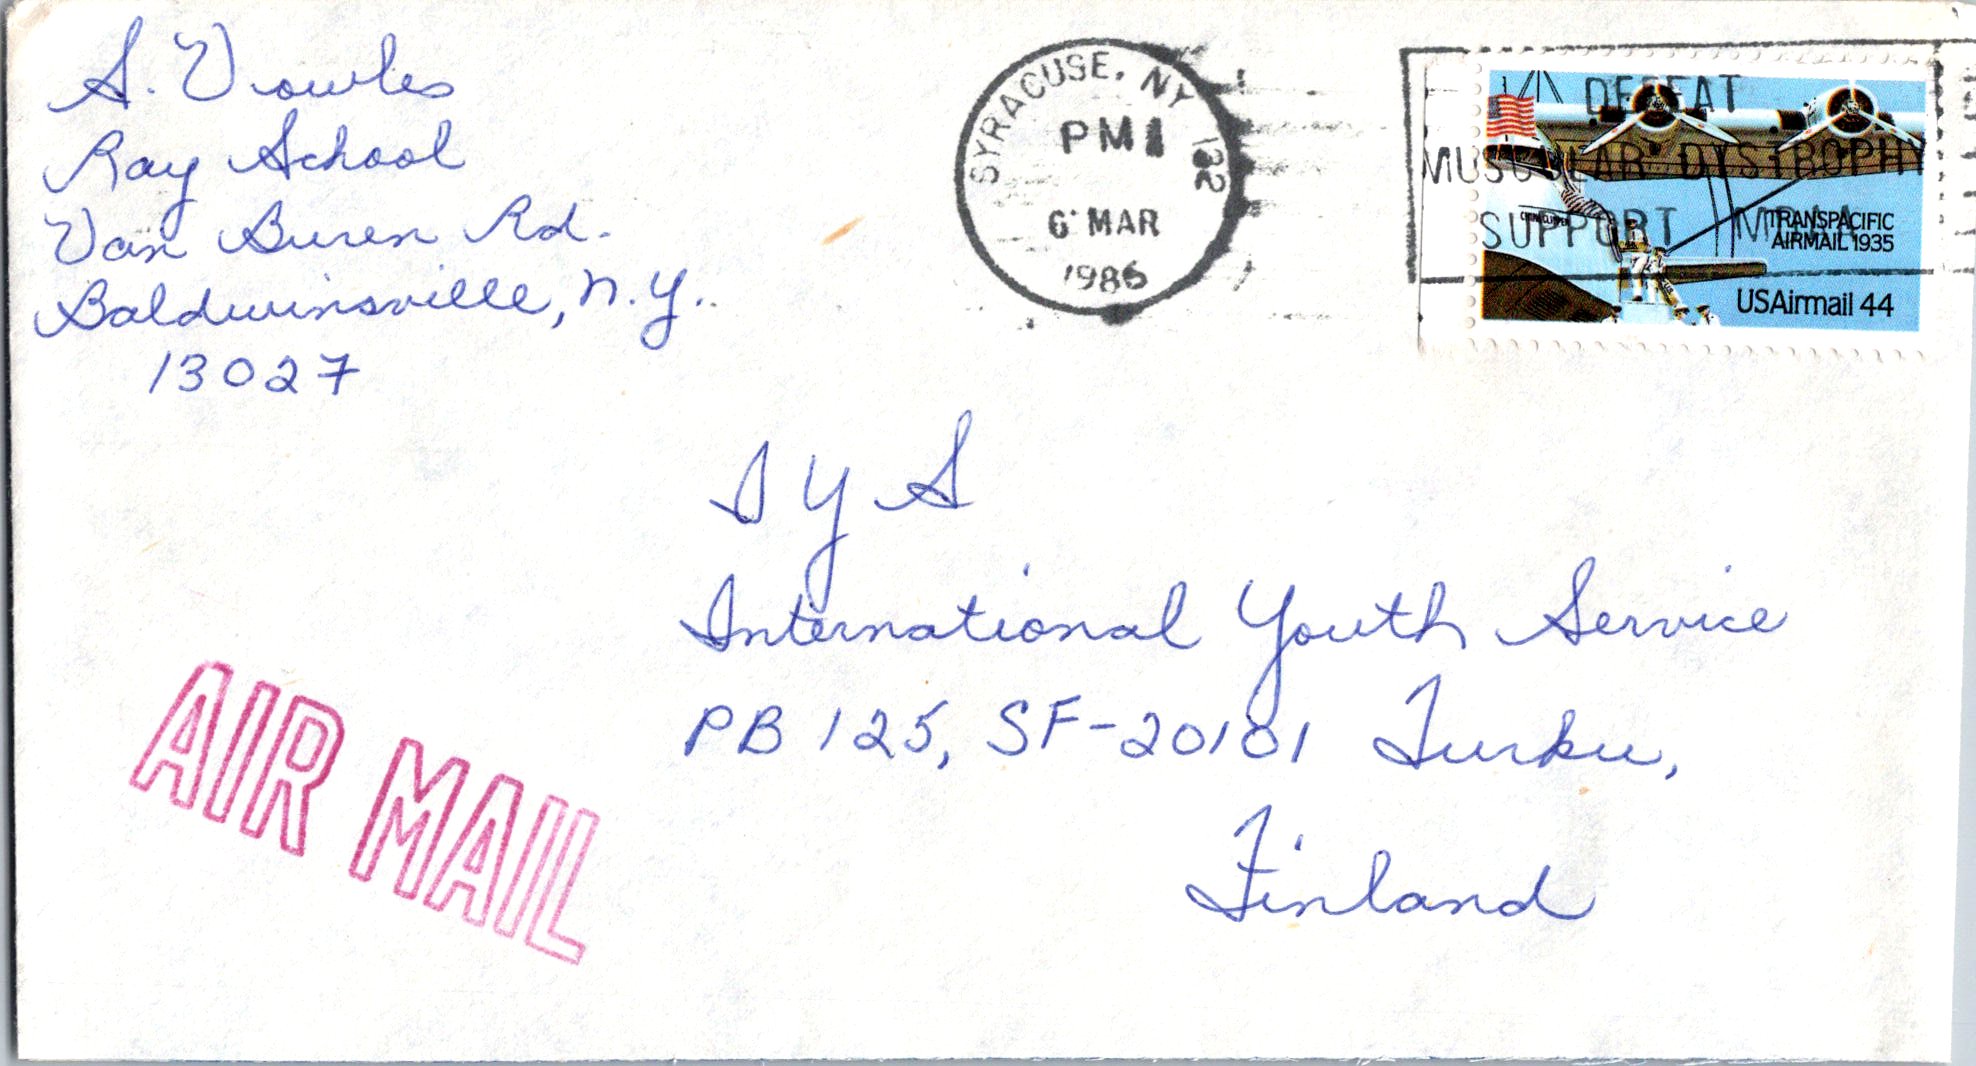 S. Vowles
Ray School
Van Buren Rd.
Baldwinsville, N.Y.
13027
SYRACUSE, NY 132
PM
6 MAR
1986
DEFEAT
MUSCULAR DYSTROPHY
SUPPORT MDAA
CHINA CLIPPER
TRANSPACIFIC
AIRMAIL 1935
USAirmail 44
I Y S
International Youth Service
PB 125, SF-20101 Turku,
Finland
AIR MAIL